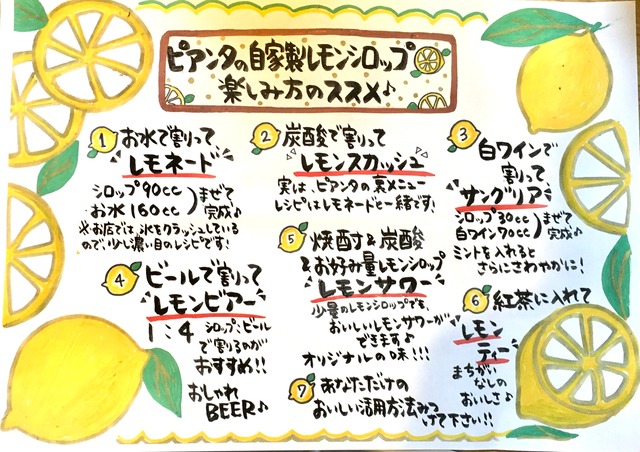 ピアンタの自家製レモンシロップ
楽しみ方のススメ♪
1 お水で割って
レモネード
シロップ90cc
お水160cc
まぜて
完成♪
※お店では、氷をクラッシュしている
ので、少し濃い目のレシピです!
2 炭酸で割って
レモンスカッシュ
実は、ピアンタの裏メニュー
レシピはレモネードと一緒です!
3 白ワインで
割って
サングリア
シロップ30cc
白ワイン70cc
まぜて
完成♪
ミントを入れると
さらにさわやかに!
4 ビールで割って
レモンビアー
1:4 シロップ:ビール
で割るのが
おすすめ!!
おしゃれ
BEER♪
5 焼酎&炭酸
&お好み量レモンシロップ
レモンサワー
少量のレモンシロップで、
おいしいレモンサワーが
できます♪
オリジナルの味!!!
6 紅茶に入れて
レモン
ティー
まちがい
なしの
おいしさ♪
7 あなただけの
おいしい活用方法みつ
けて下さい!!